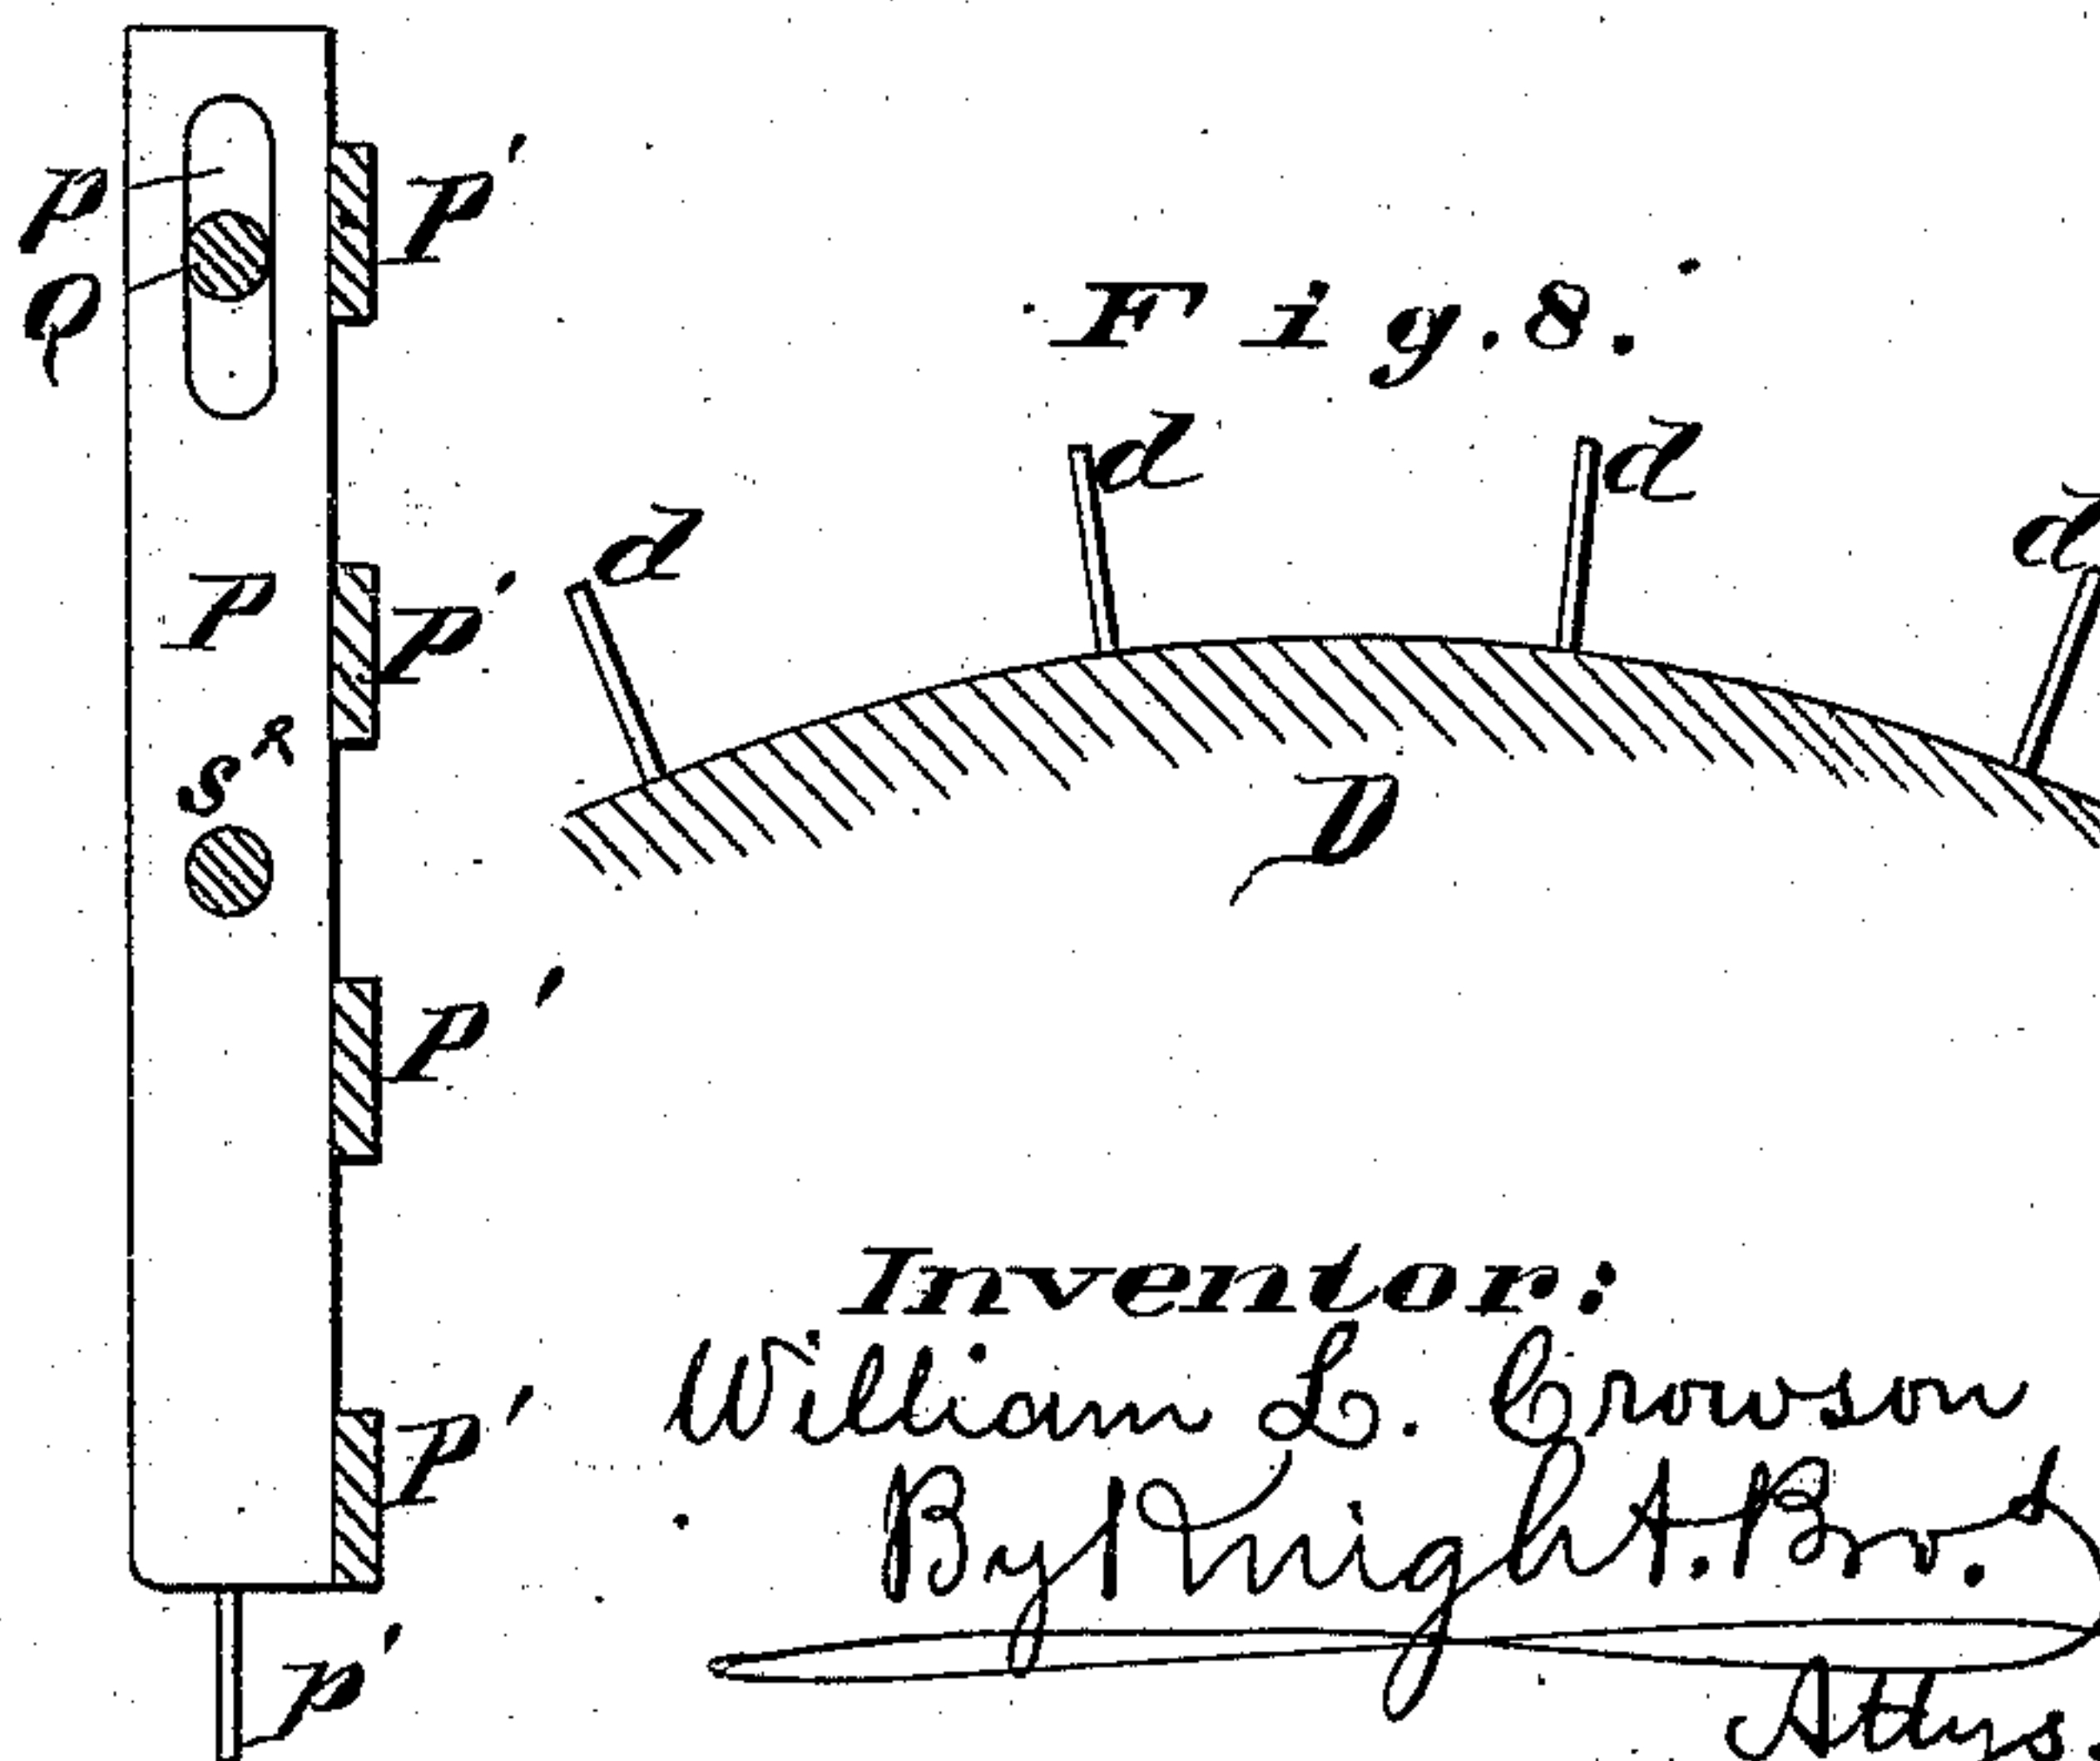 p
Q
P'
P
P'
S²
P'
P'
p'
Fig. 8.
d
d
d
d
D
Inventor:
William L. Crowson
By Knight Bros
Attys.